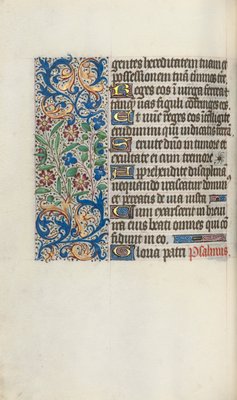 gentes hereditatem tuam et
possessionem tuā terminos terre
Reges eos ī virga ferrea
tanq̄ vas figuli confringes eos
Et nunc reges intelligite
erudimini qui iudicatis terrā
Servite dño in timore et
exultate ei cum tremore
Apprehendite disciplinā
nequando irascatur dominus
et pereatis de via iusta
Cum exarserit in brevi
ira eius beati omnes qui cō
fidunt in eo
Gloria patri Psalmus